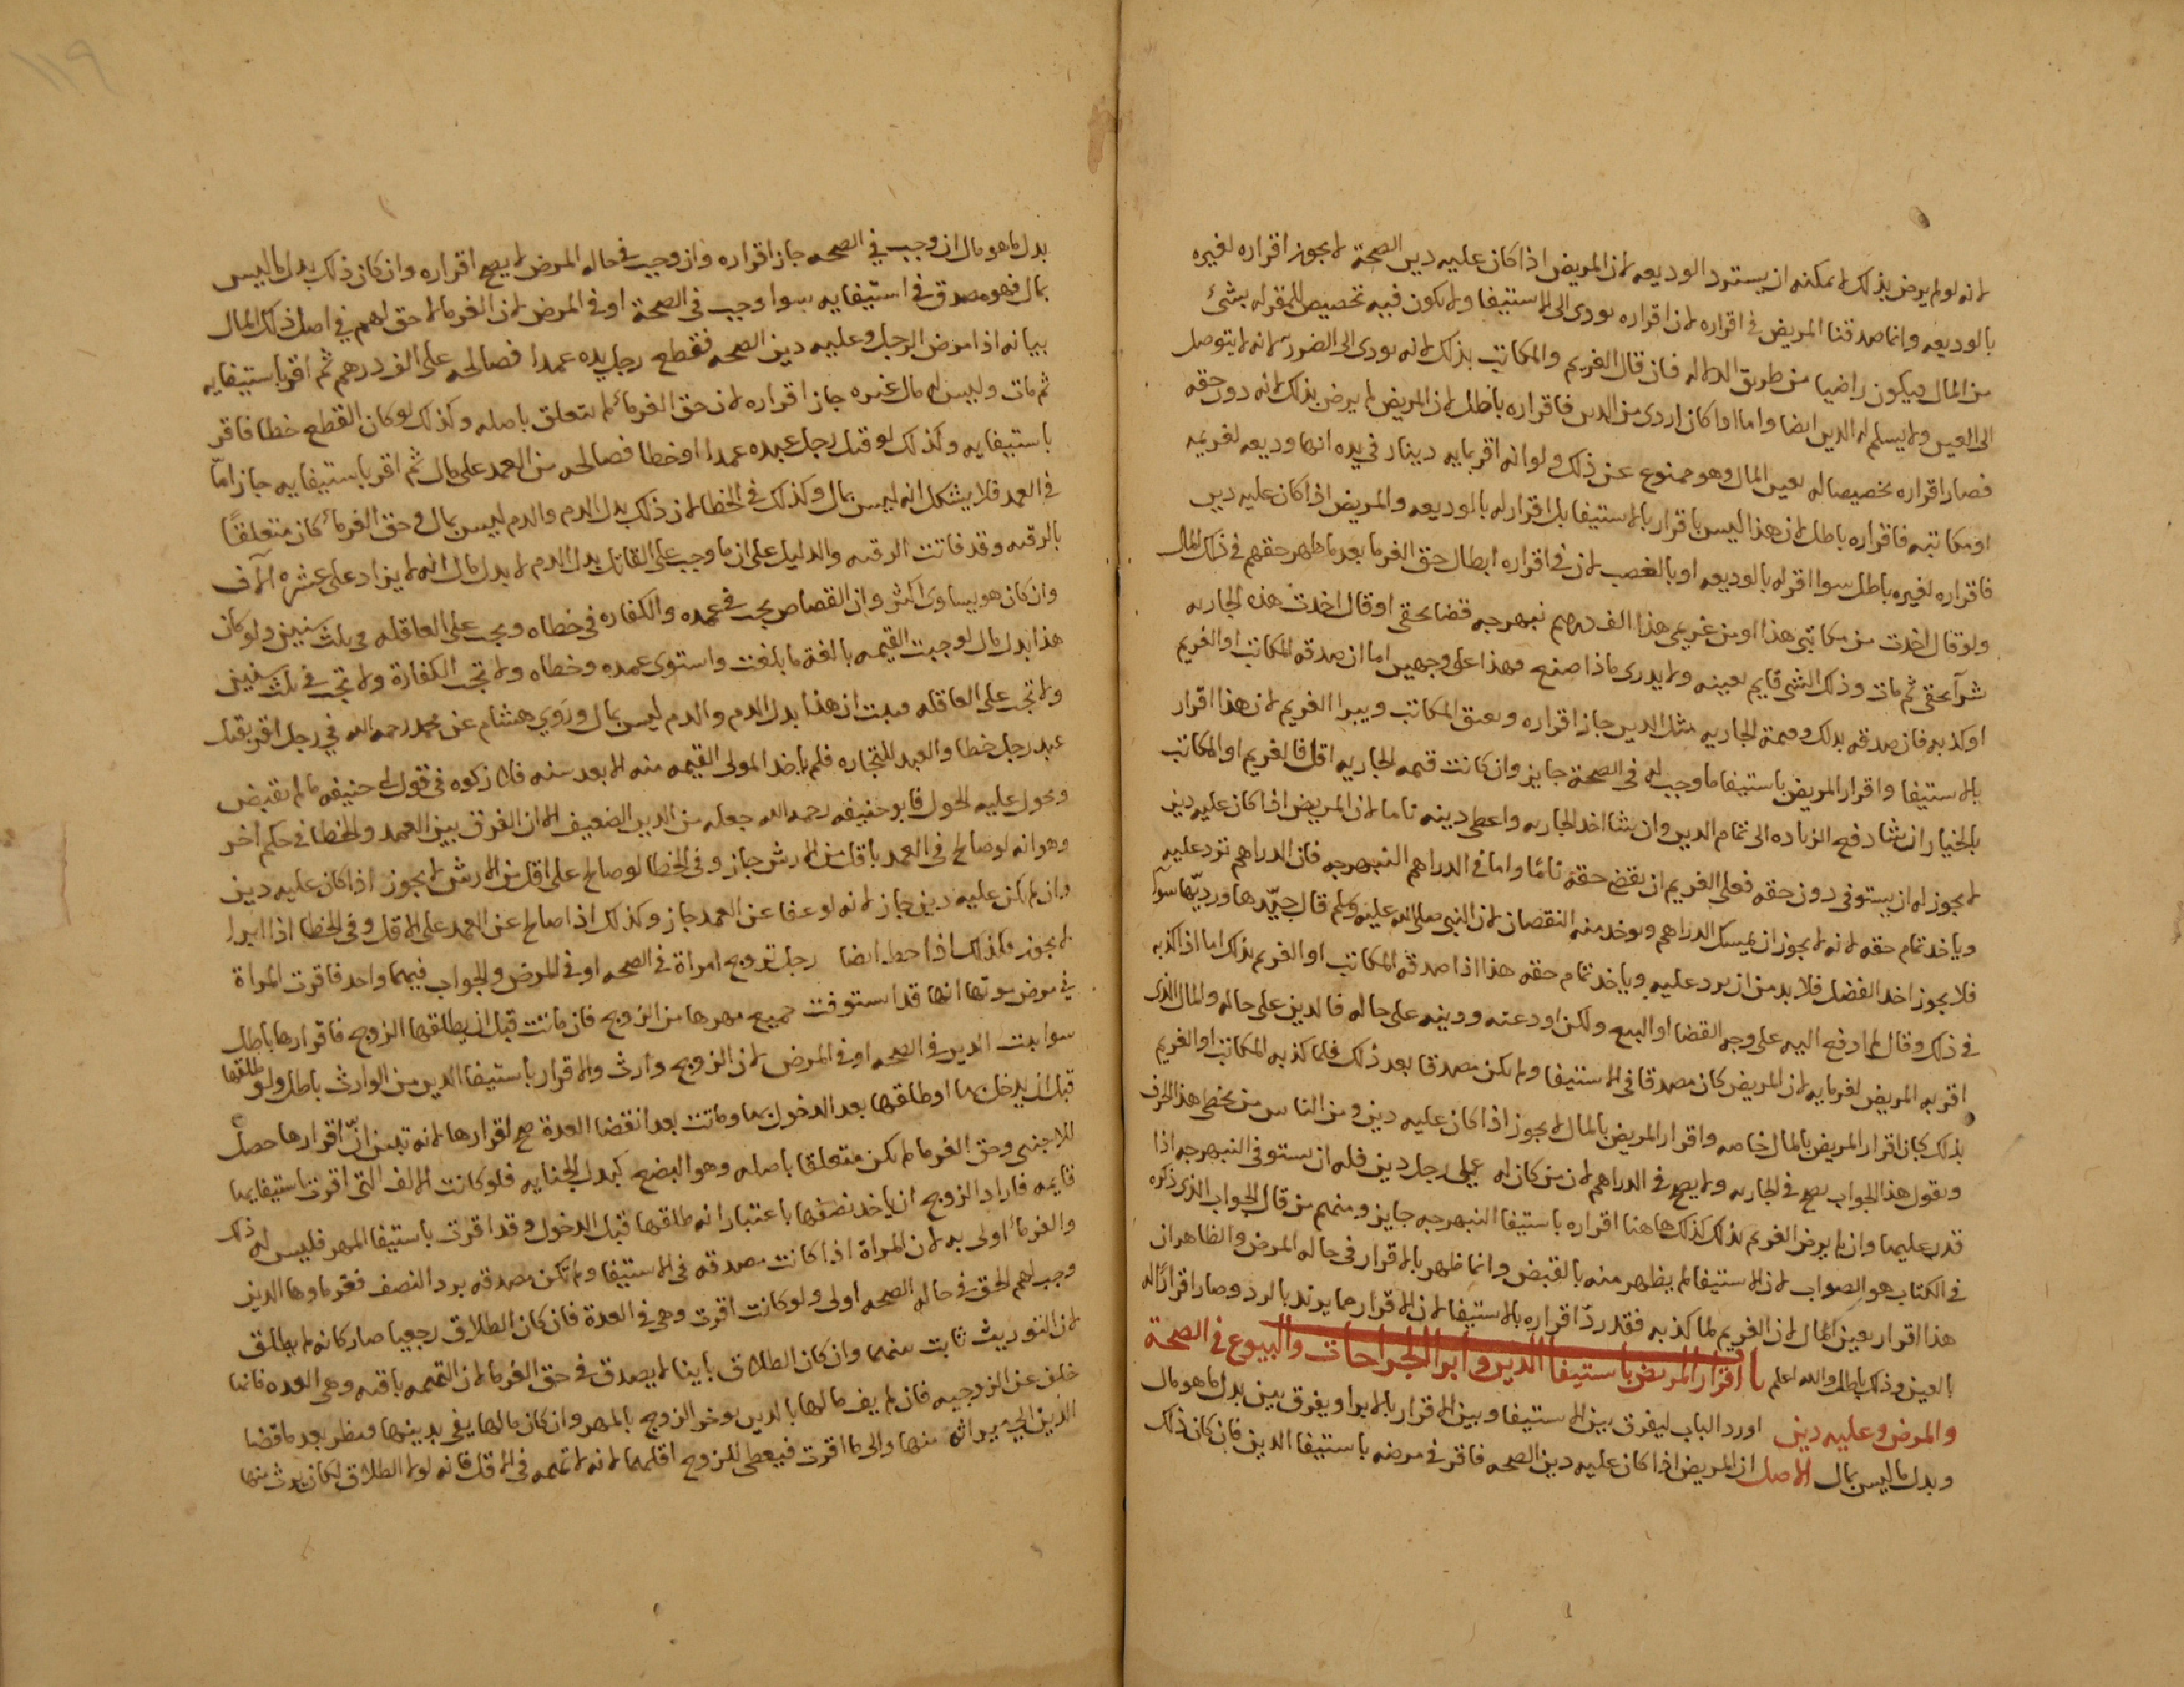 لانه لو لم يرض بذلك لا يمكنه ان يسترد الوديعه لان المريض اذا كان عليه دين الصحة لا يجوز اقراره لغيره
بالوديعه وانما صدقنا المريض فى اقراره لان اقراره يودى الى الاستيفا ولا يكون فيه تخصيص للمقر له بشئ
من المال فيكون راضيا من طريق الدلاله فان قال الغريم والمكاتب بذلك لانه يودى الى الضرر لانه لا يتوصل
الى العين ولا يسلم له الدين ايضا واما اذا كان اردى من الدين فاقراره باطل لان المريض لم يرض بذلك لانه دون حقه
فصار اقراره تخصيصا له بعين المال وهو ممنوع عن ذلك ولو انه اقر بمايه دينار فى يده انها وديعه لغريمه
او مكاتبه فاقراره باطل لان هذا ليس باقرار بالاستيفا بل اقرار له بالوديعه والمريض اذا كان عليه دين
فاقراره لغيره باطل سوا اقر له بالوديعه او بالغصب لان فى اقراره ابطال حق الغرما بعد ما ظهر حقهم فى ذلك المال
ولو قال اخذت من مكاتبى هذا او من غريمى هذا الف درهم نبهرجه قضا بحقى او قال اخذت هذه الجاريه
شرآ بحقى ثم مات وذلك الشى قايم بعينه ولا يدرى ماذا صنع فهذا على وجهين اما ان صدقه المكاتب او الغريم
او كذبه فان صدقه بذلك وقيمة الجاريه مثل الدين جاز اقراره ويعتق المكاتب ويبرا الغريم لان هذا اقرار
بالاستيفا واقرار المريض باستيفا ما وجب له فى الصحة جايز وان كانت قيمه الجاريه اقل فالغريم او المكاتب
بالخيار ان شا دفع الزياده الى تمام الدين وان شا اخذ الجاريه واعطى دينه تاما لان المريض اذا كان عليه دين
لا يجوز له ان يستوفى دون حقه فعلى الغريم ان يقضى حقه تامًا واما فى الدراهم النبهرجه فان الدراهم ترد عليه
وياخذ تمام حقه لانه لا يجوز ان يمسك الدراهم ويوخذ منه النقصان لان النبى صلى الله عليه وسلم قال جيّدها ورديّها سوآ
فلا يجوز اخذ الفضل فلا بد من ان يرد عليه وياخذ تمام حقه هذا اذا صدقه المكاتب او الغريم بذلك اما اذا كذبه
فى ذلك وقال لم ادفع اليه على وجه القضا او البيع ولكن اودعته ودينه على حاله فالدين على حاله والمال الذى
اقر به المريض لغرمايه لان المريض كان مصدقا فى الاستيفا ولم يكن مصدقا بعد ذلك فلما كذبه المكاتب او الغريم
بذلك كان اقرار المريض بالمال خاصه واقرار المريض بالمال لا يجوز اذا كان عليه دين ومن الناس من يخطى هذا الحرف
ويقول هذا الجواب يصح فى الجاريه ولا يصح فى الدراهم لان من كان له على رجل دين فله ان يستوفى النبهرجه اذا
قدر عليها وان لم يرض الغريم بذلك كذلك هاهنا اقراره باستيفا النبهرجه جايز ومنهم من قال الجواب الذى ذكره
فى الكتاب هو الصواب لان الاستيفا لم يظهر منه بالقبض وانما ظهر بالاقرار فى حاله المرض والظاهر ان
هذا اقرار بعين المال لان الغريم لما كذبه فقد ردّ اقراره بالاستيفا لان الاقرار مما يرتد بالرد وصار اقرارًا له
بالعين وذلك باطل والله اعلم باب اقرار المريض باستيفا الدين وابرا الجراحات والبيوع فى الصحة
والمرض وعليه دين اورد الباب ليفرق بين الاستيفا وبين الاقرار بالابرا ويفرق بين بدل ما هو مال
وبدل ما ليس بمال الاصل ان المريض اذا كان عليه دين الصحه فاقر فى مرضه باستيفا الدين فان كان ذلك
١١٩
بدل ما هو مال ان وجب فى الصحه جاز اقراره وان وجب فى حاله المرض لا يصح اقراره وان كان ذلك بدل ما ليس
بمال فهو مصدق فى استيفايه سوا وجب فى الصحة او فى المرض لان الغرما لا حق لهم فى اصل ذلك المال
بيانه اذا مرض الرجل وعليه دين الصحه فقطع رجل يده عمدا فصالحه على الف درهم ثم اقر باستيفايه
ثم مات وليس له مال غيره جاز اقراره لان حق الغرمائ لم يتعلق باصله وكذلك لو كان القطع خطا فاقر
باستيفايه وكذلك لو قتل رجل عبده عمدا او خطا فصالحه من العمد على مال ثم اقر باستيفايه جاز امّا
فى العمد فلا يشكل انه ليس بمال وكذلك فى الخطا لان ذلك بدل الدم والدم ليس بمال وحق الغرمائ كان متعلقًا
بالرقبه وقد فاتت الرقبه والدليل على ان ما وجب على القاتل بدل الدم لا بدل مال انه لا يزاد على عشره الآف
وان كان هو يساوى اكثر وان القصاص يجب فى عمده والكفاره فى خطاه ويجب على العاقله فى ثلث سنين ولو كان
هذا بدل مال لوجبت القيمه بالغة ما بلغت واستوى عمده وخطاه ولا تجب الكفارة ولا تجب فى ثلث سنين
ولا تجب على العاقله فثبت ان هذا بدل الدم والدم ليس بمال ورَوى هشام عن محمد رحمه الله فى رجل اقر بقتل
عبد رجل خطا والعبد للتجاره فلم ياخذ المولى القيمه منه الا بعد سنه فلا زكوه فى قول ابى حنيفه ما لم يقبض
ويحول عليه الحول فابو حنيفه رحمه الله جعله من الدين الضعيف الا ان الفرق بين العمد والخطا فى حكم اخر
وهو انه لو صالح فى العمد باقل من الارش جاز وفى الخطا لو صالح على اقل من الارش لا يجوز اذا كان عليه دين
وان لم يكن عليه دين جاز لانه لو عفا عن العمد جاز وكذلك اذا صالح عن العمد على الاقل وفى الخطا اذا ابرا
لا يجوز فكذلك اذا حط ايضا رجل تزوج امراة فى الصحه او فى المرض والجواب فيهما واحد فاقرت المراة
فى مرض موتها انها قد استوفت جميع مهرها من الزوج فان ماتت قبل ان يطلقها الزوج فاقرارها باطل
سوا ثبت الدين فى الصحه او فى المرض لان الزوج وارث والاقرار باستيفا الدين من الوارث باطل ولو طلقها
قبل ان يدخل بها او طلقها بعد الدخول بها وماتت بعد انقضا العدة صح اقرارها لانه تبين انّ اقرارها حصل
للاجنبى وحق الغرما لم يكن متعلقا باصله وهو البضع كبدل الجنايه فلو كانت الالف التى اقرت باستيفايها
قايمه فاراد الزوج ان ياخذ نصفها باعتبار انه طلقها قبل الدخول وقد اقرت باستيفا المهر فليس له ذلك
والغرمائ اولى به لان المراة اذا كانت مصدقه فى الاستيفا ولم تكن مصدقه برد النصف فغرماوها الذين
وجب لهم الحق فى حاله الصحه اولى ولو كانت اقرت وهى فى العدة فان كان الطلاق رجعيا صار كانه لم يطلق
لان التوريث ثابت منهما وان كان الطلاق باينا لا يصدق فى حق الغرما لان التهمه باقيه وهى العده فانها
خلف عن الزوجيه فان لم يف مالها بالدين يوخر الزوج بالمهر وان كان مالها يفى بدينها فينظر بعد ما قضا
الدين الى ميراثه منها والى ما اقرت فيعطى للزوج اقلهما لانه لا تهمه فى الاقل فانه لولا الطلاق لكان يرث منها